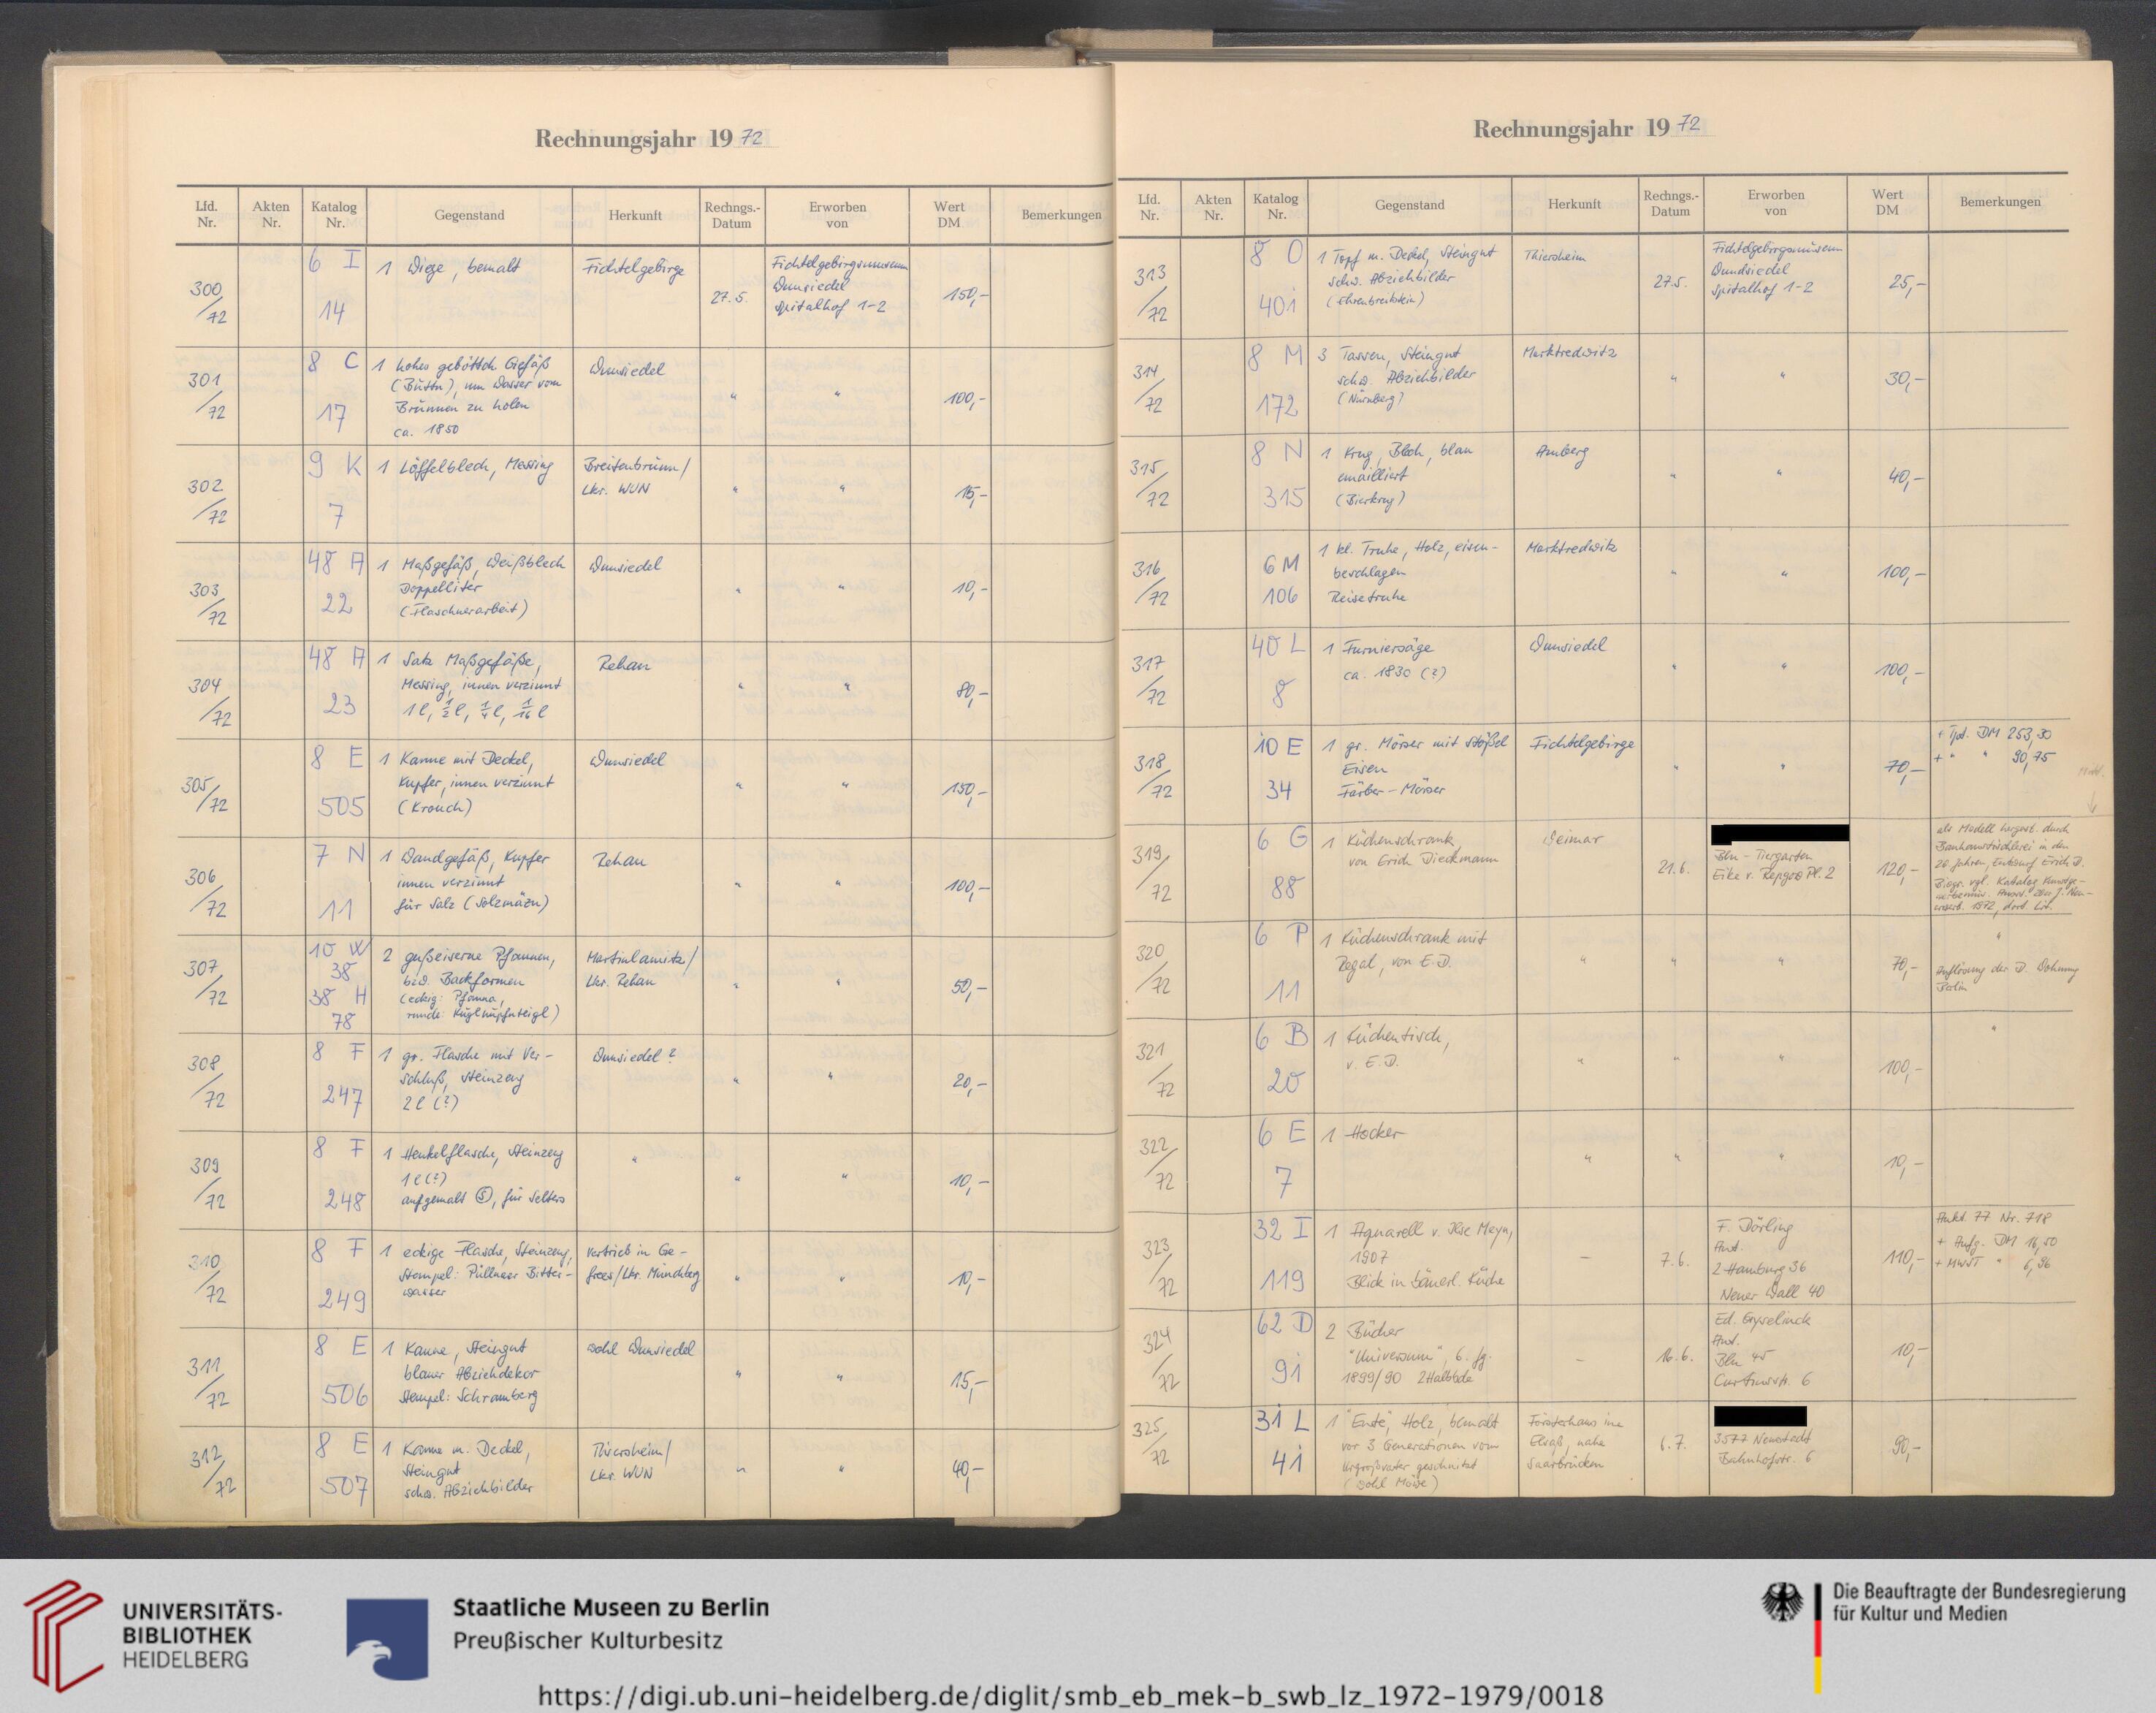 Rechnungsjahr 1972
Lfd. Nr.
Akten Nr.
Katalog Nr.
Gegenstand
Herkunft
Rechngs.-Datum
Erworben von
Wert DM
Bemerkungen
300/72
6 I
14
1 Wiege, bemalt
Fichtelgebirge
27.5.
Fichtelgebirgsmuseum
Wunsiedel
Spitalhof 1-2
150,-
301/72
8 C
17
1 hohes gebüttch Gefäß
(Buttn), um Wasser vom
Brunnen zu holen
ca. 1850
Wunsiedel
"
"
100,-
302/72
9 K
7
1 Löffelblech, Messing
Breitenbrunn/
Lkr. WUN
"
"
15,-
303/72
48 A
22
1 Maßgefäß, Weißblech
Doppelliter
(Flaschnerarbeit)
Wunsiedel
"
"
10,-
304/72
48 A
23
1 Satz Maßgefäße,
Messing, innen verzinnt
1 l, 1/2 l, 1/4 l, 1/16 l
Rehau
"
"
80,-
305/72
8 E
505
1 Kanne mit Deckel,
Kupfer, innen verzinnt
(Krouch)
Wunsiedel
"
"
150,-
306/72
7 N
11
1 Wandgefäß, Kupfer
innen verzinnt
für Salz (Solzmäzn)
Rehau
"
"
100,-
307/72
10 W
38
38 H
78
2 gußeiserne Pfannen,
bzw. Backformen
(eckig: Pfanna,
Martinlamitz/
Lkr. Rehau
"
"
50,-
308/72
8 F
247
1 gr. Flasche mit Ver-
schluß, Steinzeug
2 l (?)
Wunsiedel ?
"
"
20,-
309/72
8 F
248
1 Henkelflasche, Steinzeug
1 l (?)
aufgemalt Ⓢ, für Selters
"
"
"
10,-
310/72
8 F
249
1 eckige Flasche, Steinzeug,
Stempel: Püllnaer Bitter-
wasser
Vertrieb in Ge-
frees/Lkr. Münchberg
"
"
10,-
311/72
8 E
506
1 Kanne, Steingut
blauer Abziehdekor
Stempel: Schramberg
wohl Wunsiedel
"
"
15,-
312/72
8 E
507
1 Kanne m. Deckel,
Steingut
schw. Abziehbilder
Thiersheim/
Lkr. WUN
"
"
40,-
Rechnungsjahr 1972
Lfd. Nr.
Akten Nr.
Katalog Nr.
Gegenstand
Herkunft
Rechngs.-Datum
Erworben von
Wert DM
Bemerkungen
313/72
8 O
401
1 Topf m. Deckel, Steingut
schw. Abziehbilder
(Ehrenbreitstein)
Thiersheim
27.5.
Fichtelgebirgsmuseum
Wunsiedel
Spitalhof 1-2
25,-
314/72
8 M
172
3 Tassen, Steingut
schw. Abziehbilder
(Nürnberg)
Marktredwitz
"
"
30,-
315/72
8 N
315
1 Krug, Blech, blau
emailliert
(Bierkrug)
Amberg
"
"
40,-
316/72
6 M
106
1 kl. Truhe, Holz, eisen-
beschlagen
Reisetruhe
Marktredwitz
"
"
100,-
317/72
40 L
8
1 Furniersäge
ca. 1830 (?)
Wunsiedel
"
"
100,-
318/72
10 E
34
1 gr. Mörser mit Stößel
Eisen
Färber-Mörser
Fichtelgebirge
"
"
70,-
+ Tpt. DM 253,30
+ " " 90,75
319/72
6 G
88
1 Küchenschrank
von Erich Dieckmann
Weimar
21.6.
Bln-Tiergarten
Eike v. Repgow Pl. 2
120,-
als Modell hergest. durch
Bauhaustischlerei in den
20. Jahren, Entwurf Erich D.
Biogr. vgl. Katalog Kunstge-
werbemus. Ausst.
1972, dort Lit.
320/72
6 P
11
1 Küchenschrank mit
Regal, von E.D.
"
"
"
70,-
"
Auflösung der D. Wohnung
Berlin
321/72
6 B
20
1 Küchentisch,
v. E.D.
"
"
"
100,-
"
322/72
6 E
7
1 Hocker
"
"
"
10,-
323/72
32 I
119
1 Aquarell v. Ilse Meyn,
1907
Blick in bäuerl. Küche
-
7.6.
F. Dörling
Ant.
2 Hamburg 36
Neuer Wall 40
110,-
Aukt. 77 Nr. 718
+ Aufg. DM 16,50
+ MWST " 6,96
324/72
62 D
91
2 Bücher
"Universum", 6. Jg.
1899/90 2 Halbbde
-
16.6.
Ed. Gyselinck
Ant.
Bln 45
Curtiusstr. 6
10,-
325/72
31 L
41
1 "Ente", Holz, bemalt
vor 3 Generationen vom
Urgroßvater geschnitzt
(wohl Möwe)
Försterhaus im
Elsaß, nahe
Saarbrücken
6.7.
3577 Neustadt
Bahnhofstr. 6
90,-
UNIVERSITÄTS-
BIBLIOTHEK
HEIDELBERG
Staatliche Museen zu Berlin
Preußischer Kulturbesitz
Die Beauftragte der Bundesregierung
für Kultur und Medien
https://digi.ub.uni-heidelberg.de/diglit/smb_eb_mek-b_swb_lz_1972-1979/0018